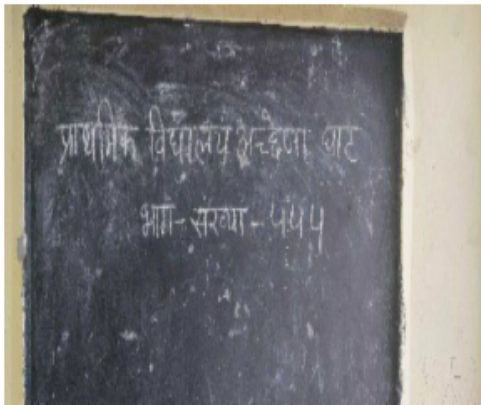 प्राथमिक विद्यालय अच्छेजा घाट
भाग-संख्या-५५५